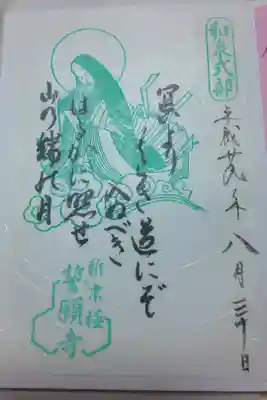 和泉式部
平成廿九年八月三十日
冥より
くらき道にぞ
入ぬべき
はるかに照せ
山の端の月
新京極
誓願寺